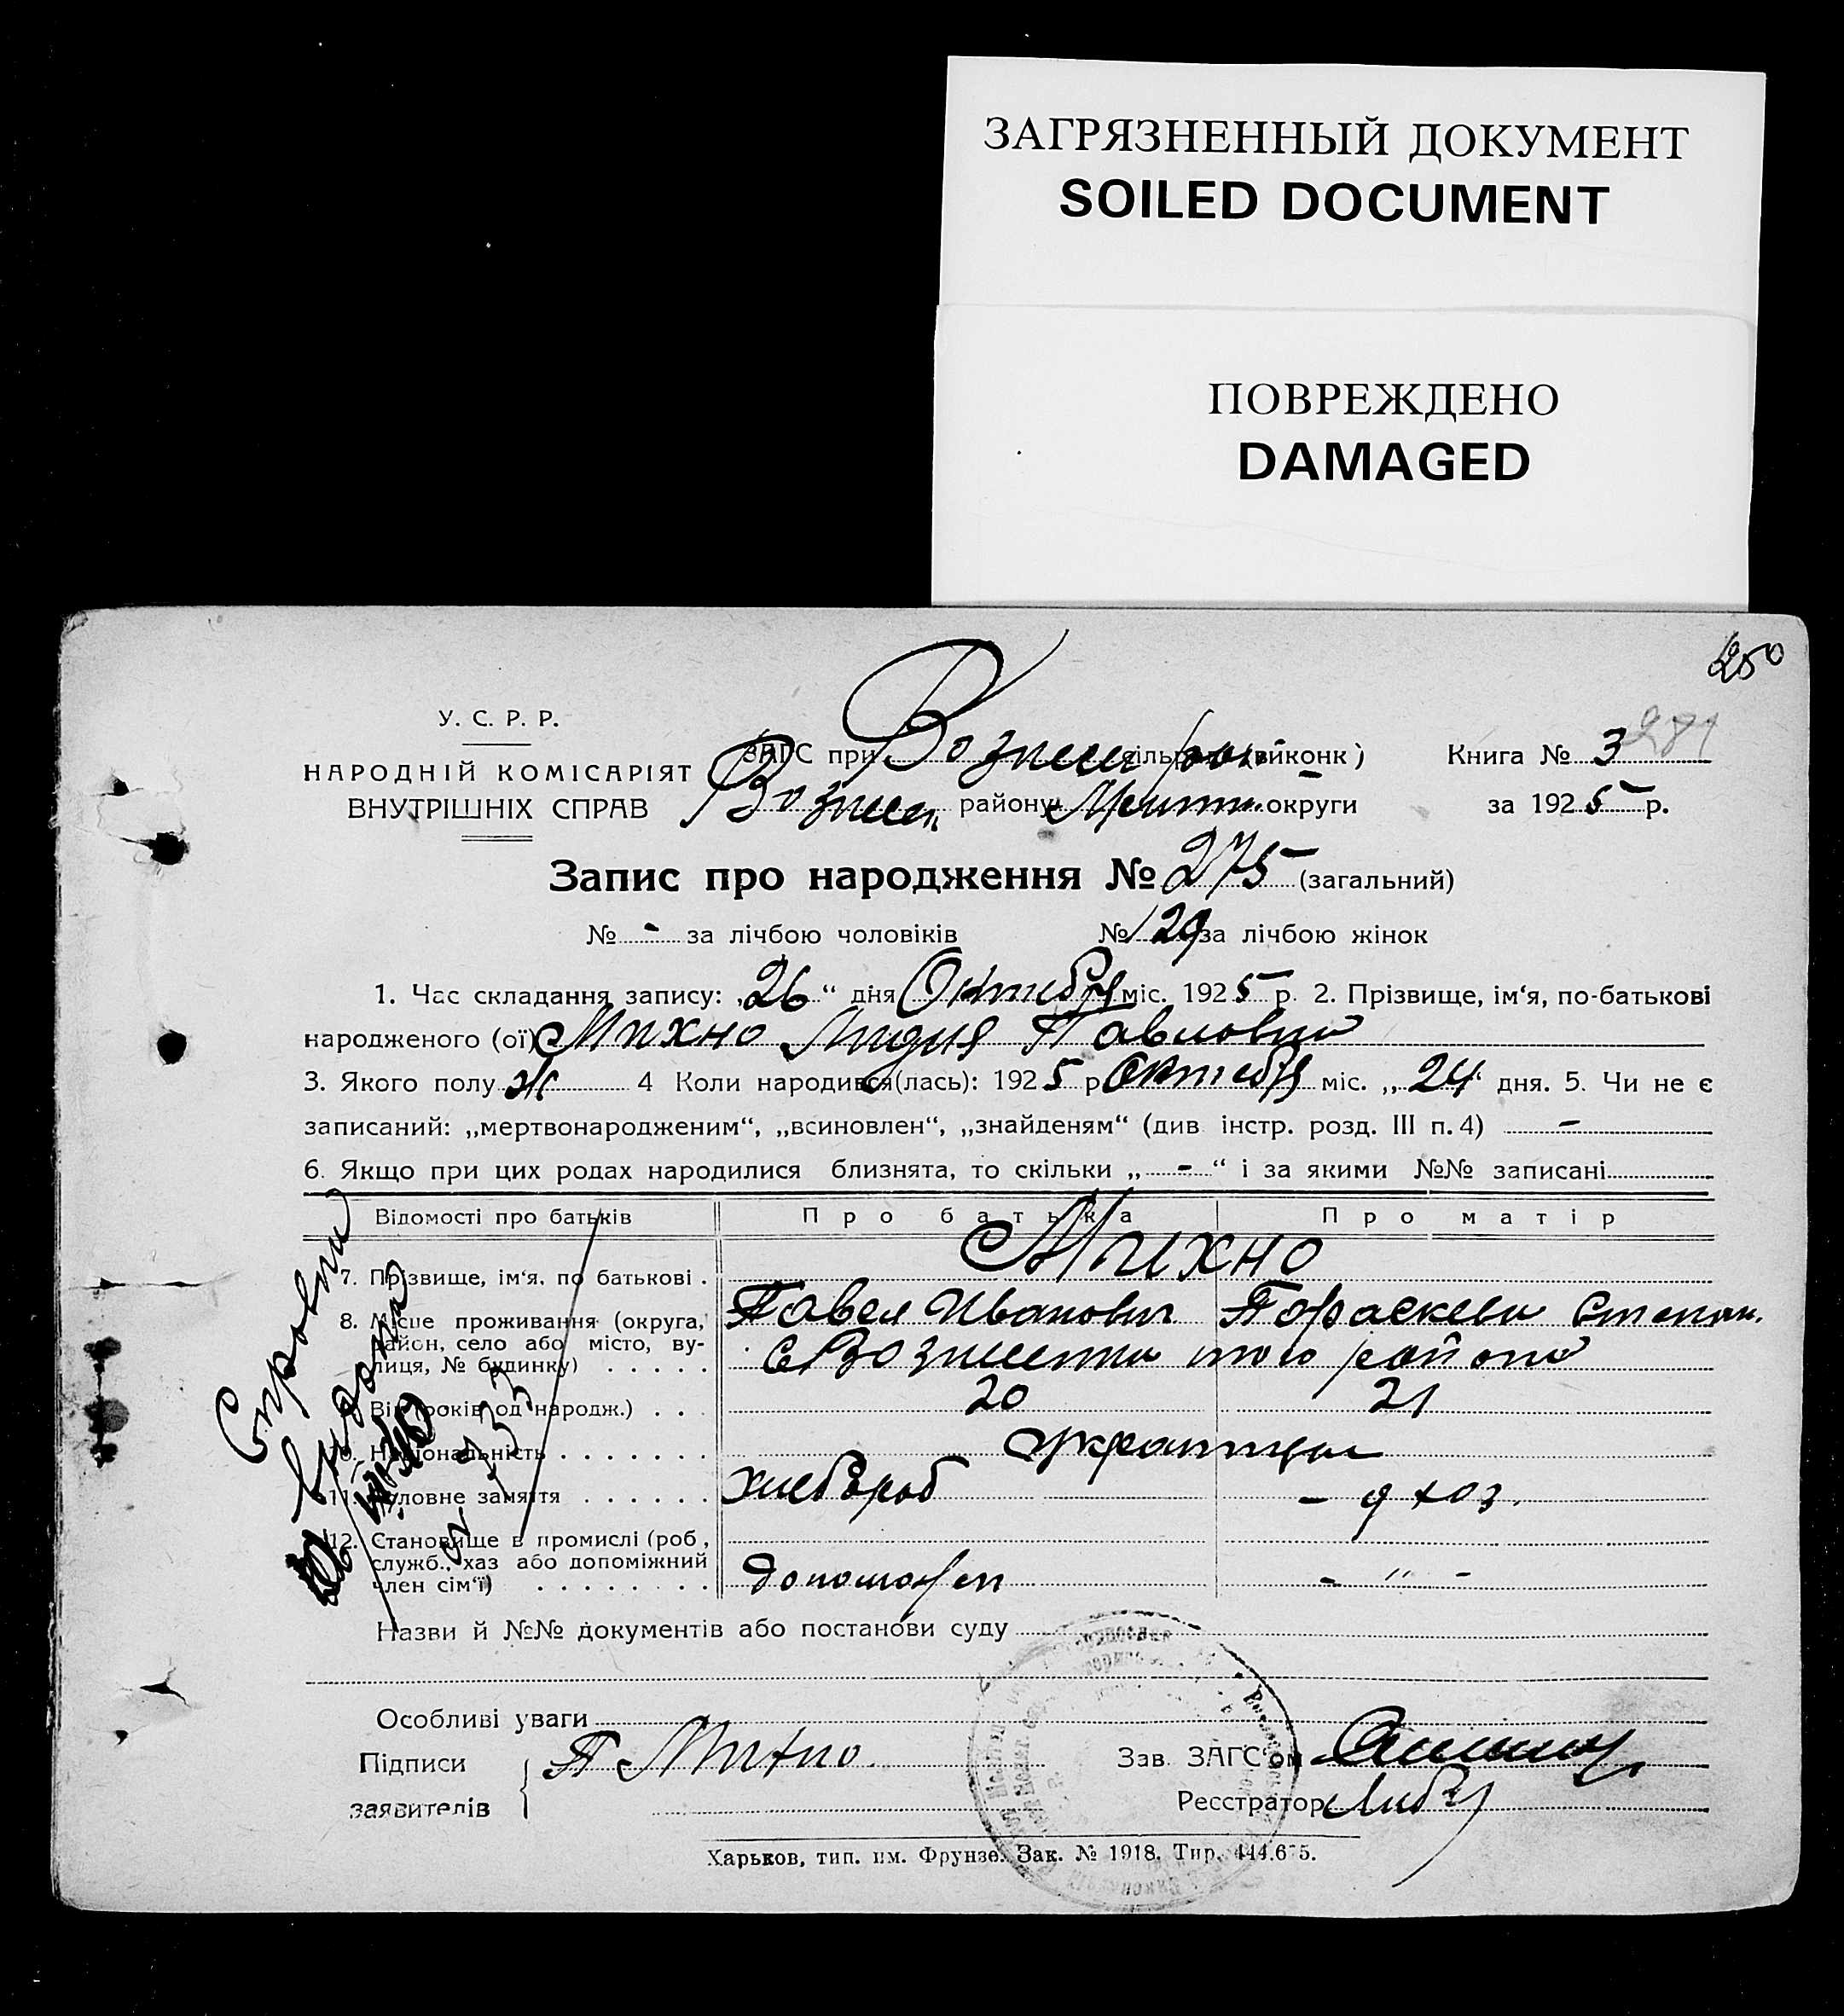 ЗАГРЯЗНЕННЫЙ ДОКУМЕНТ
SOILED DOCUMENT
ПОВРЕЖДЕНО
DAMAGED
250
281
У. С. Р. Р.
НАРОДНІЙ КОМІСАРІЯТ
ВНУТРІШНІХ СПРАВ
ЗАГС при виконк)
Возне району округи
Книга № 3
за 1925 р.
Запис про народження № 275 (загальний)
№ - за лічбою чоловіків № 129 за лічбою жінок
1. Час складання запису: „26“ дня Октября міс. 1925 р. 2. Прізвище, ім‘я, по-батькові
народженого (ої) Михно Лидия Павловна
3. Якого полу ж 4 Коли народився(лась): 1925 р Октября міс. „24“ дня. 5. Чи не є
записаний: „мертвонародженим“, „всиновлен“, „знайденям“ (див інстр. розд. III п. 4) -
6. Якщо при цих родах народилися близнята, то скільки „-“ і за якими №№ записані
Відомості про батьків Про батька Про матір
Михно
7. Прізвище, ім‘я, по батькові . Павел Иванович Параскева Степан.
8. Місце проживання (округа, район, село або місто, вулиця, № будинку) . . . . . того района
9. Вік (років од народж.) . . . 20 21
10. Національність . . . . . . . украинцы
11. Головне заняття . . . . . . хлебороб - д хоз.
12. Становище в промислі (роб, служб., хаз або допоміжний член сім‘ї) . . . . . . . . - " -
Справка
выдана
Назви й №№ документів або постанови суду
Особливі уваги
Підписи
заявителів
П Михно
Зав. ЗАГС‘ом
Реєстратор
Харьков, тип. им. Фрунзе. Зак. № 1918. Тир. 444.675.